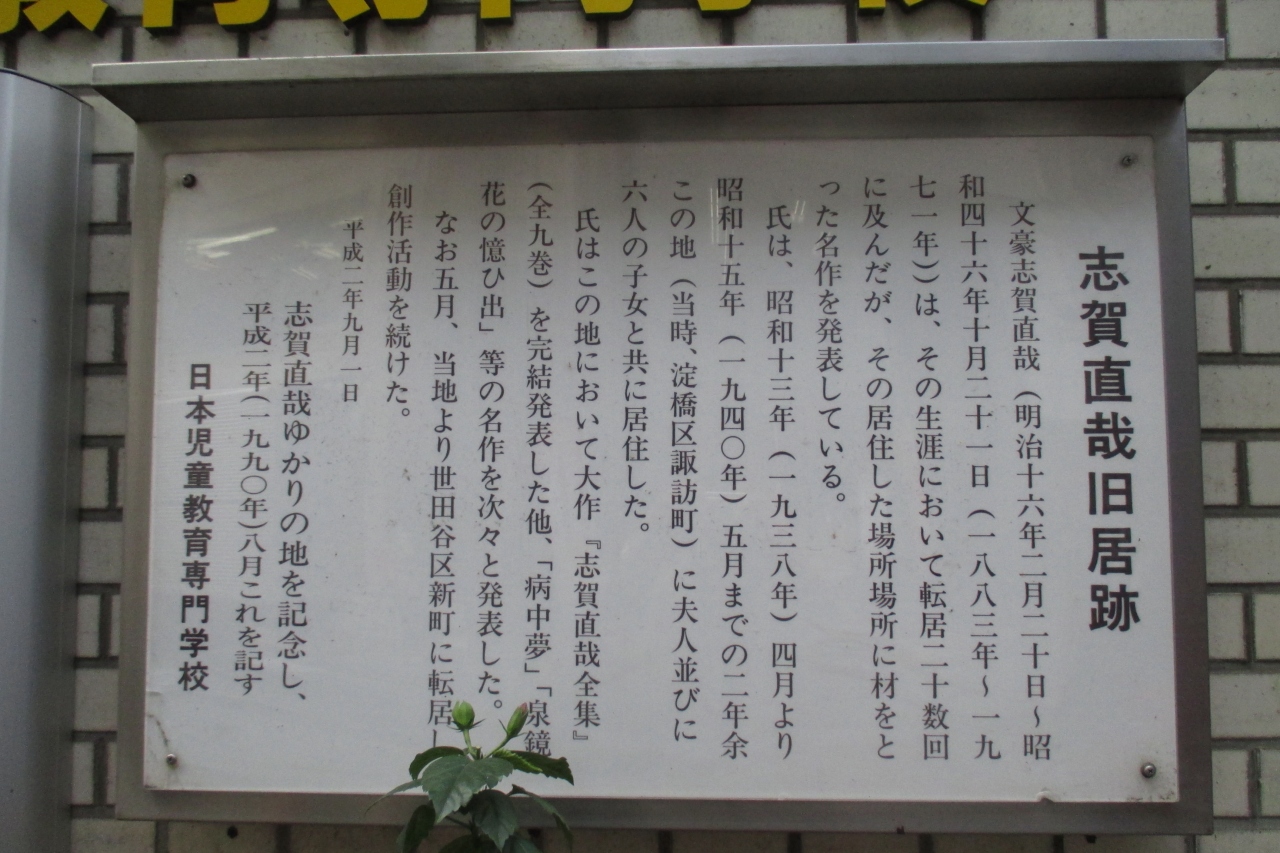 教育専門学校
志賀直哉旧居跡
文豪志賀直哉（明治十六年二月二十日～昭
和四十六年十月二十一日（一八八三年～一九
七一年））は、その生涯において転居二十数回
に及んだが、その居住した場所場所に材をと
った名作を発表している。
氏は、昭和十三年（一九三八年）四月より
昭和十五年（一九四〇年）五月までの二年余
この地（当時、淀橋区諏訪町）に夫人並びに
六人の子女と共に居住した。
氏はこの地において大作『志賀直哉全集』
（全九巻）を完結発表した他、「病中夢」「泉鏡
花の憶ひ出」等の名作を次々と発表した。
なお五月、当地より世田谷区新町に転居し
創作活動を続けた。
平成二年九月一日
志賀直哉ゆかりの地を記念し、
平成二年（一九九〇年）八月これを記す
日本児童教育専門学校